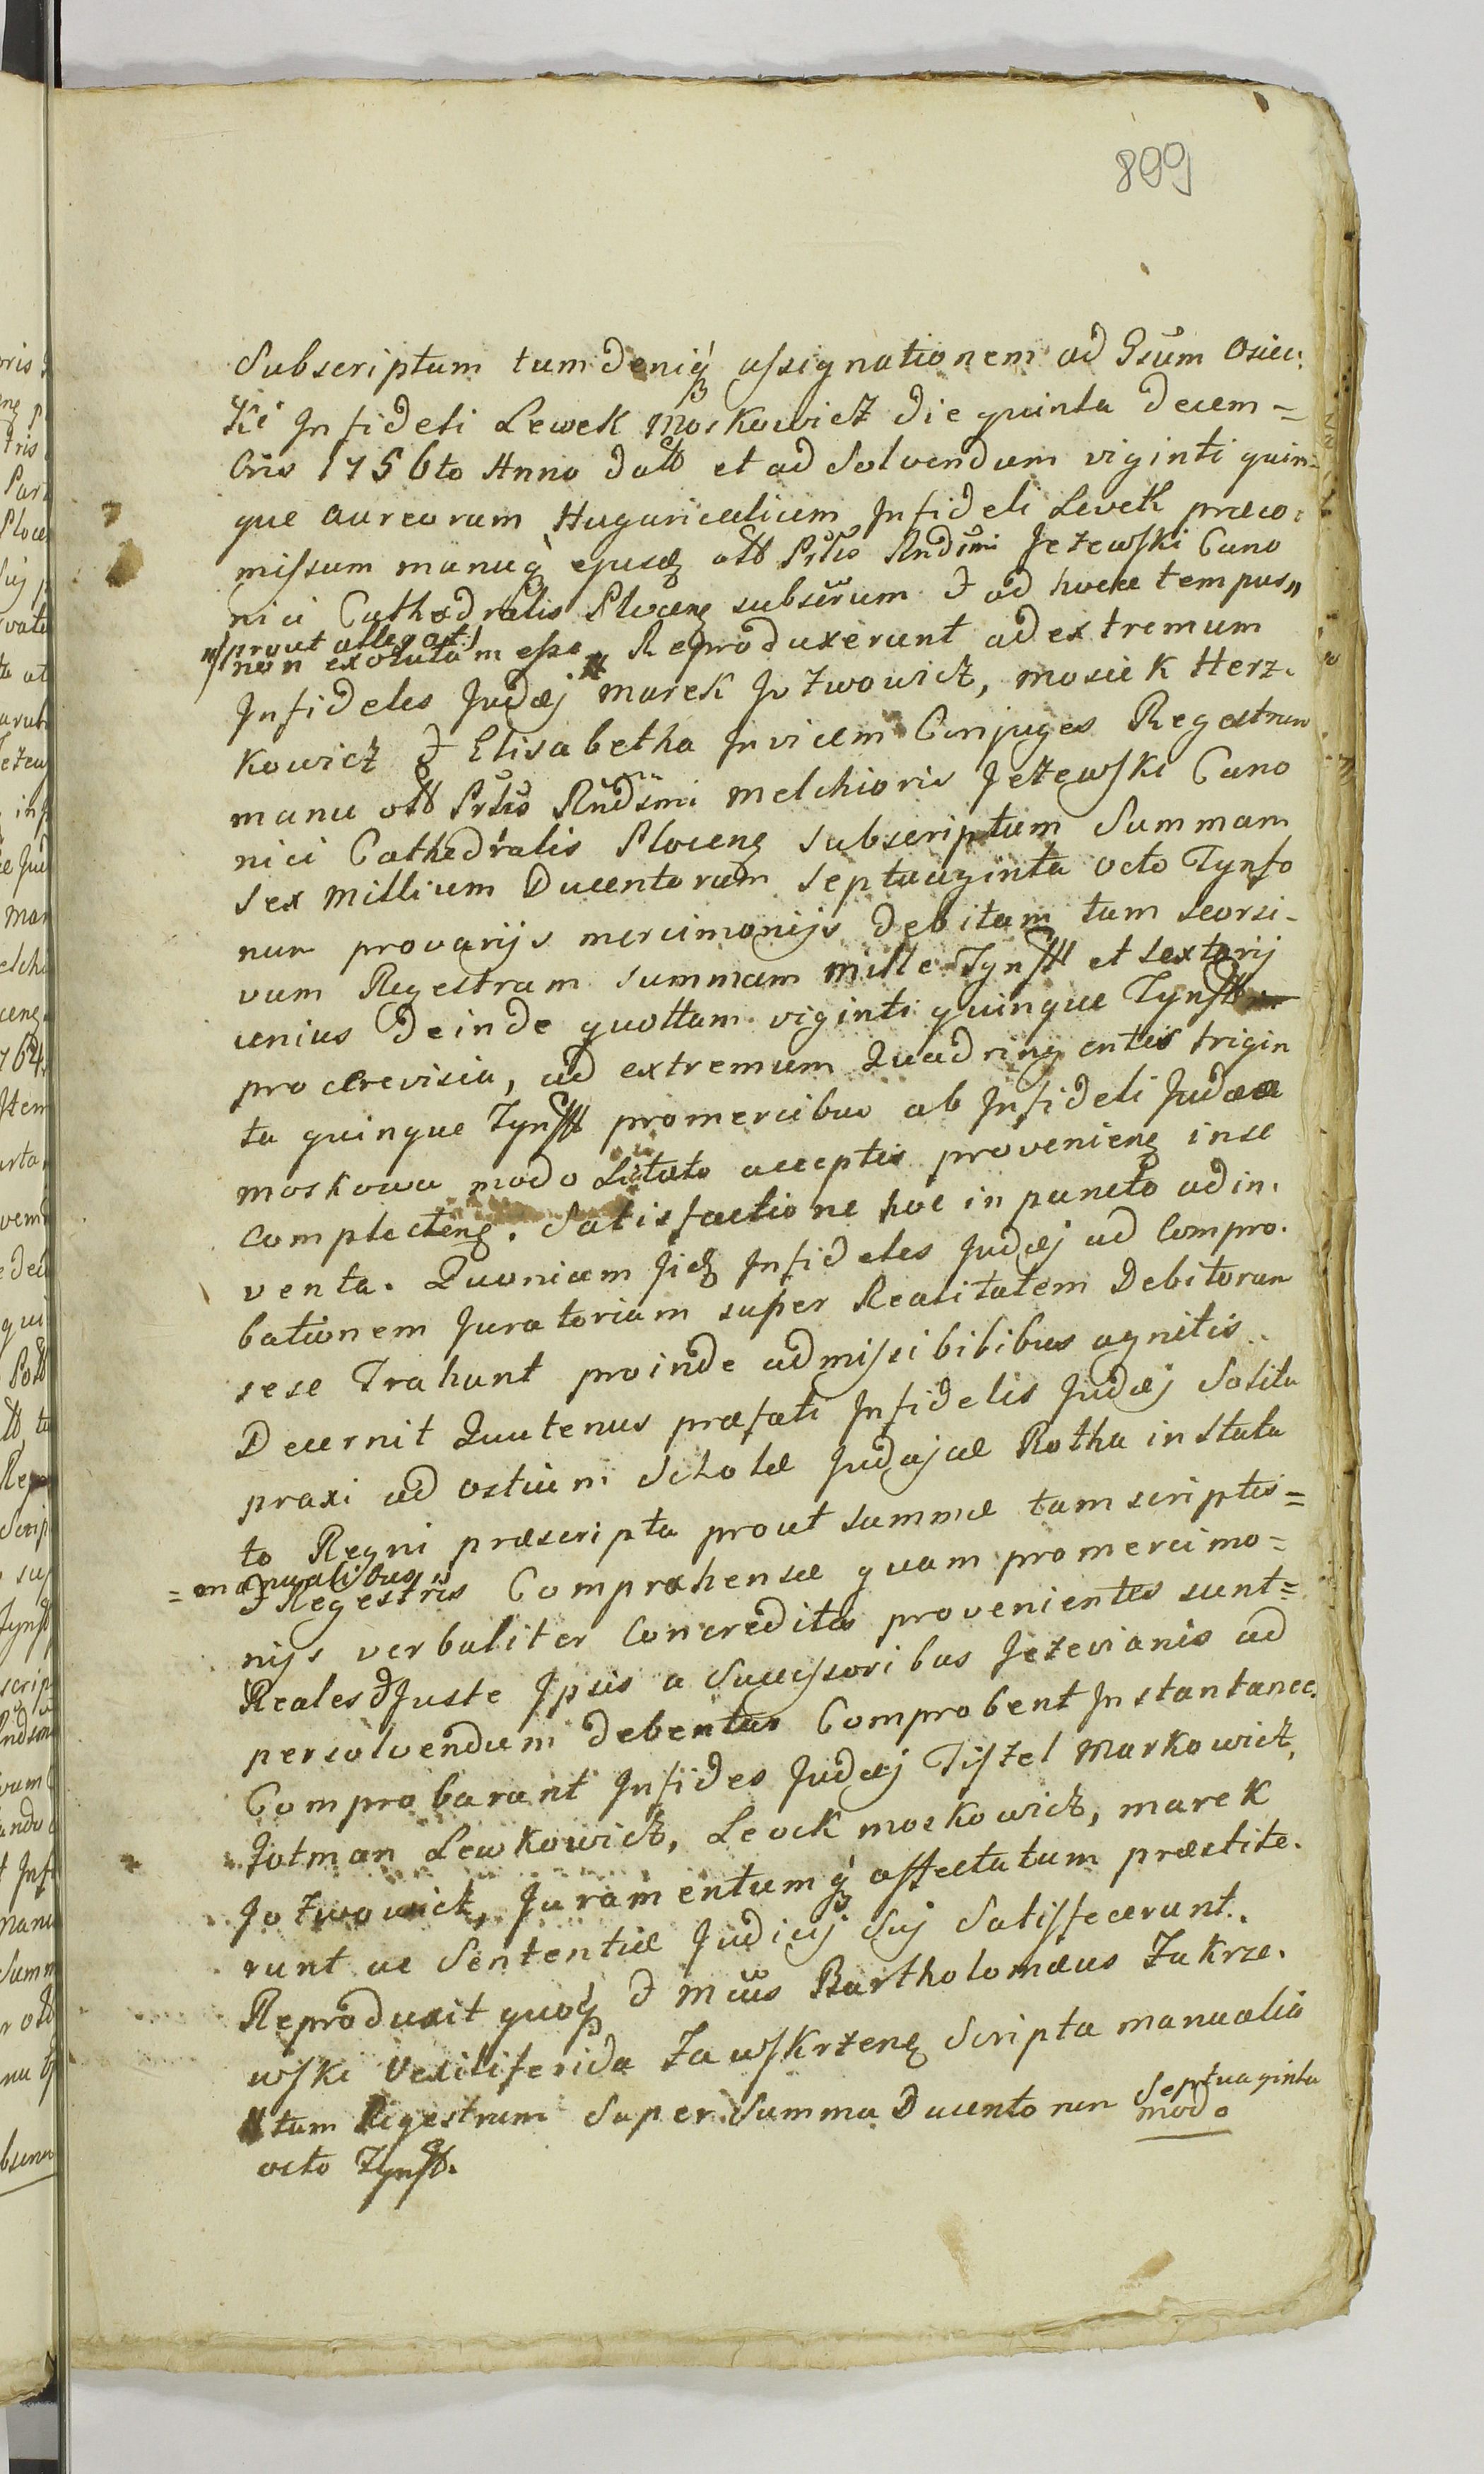 809
Subscriptum tum deniq́ assignationem ad Gsum Osiec:
ki Infideli Lewek Moskowicz die quinta Decem=
bris 1756to Anno datt et ad Solvendum viginti quin=
que Aureorum Hugaricalium Infideli Levek præo:
missum manuq́ ejusd olb Prlis Rndsmi Jeżewski Cano
nici Cathedralis Plocens subscrum & ad hocce tempus „
„/prout allegat:/
non exolutam esse Reproduxerunt ad extremum
Infideles Judæj Marek Jozwowicz, Mosiek Herz.
kowicz & Elisabetha Invicem Conjuges Regestrum
manu olb Prlis Rndsmi Melchioris Jeżewski Cano
nici Cathedralis Plocens Subscriptum Summam
Sex Millium Ducentorum Septuaginta Octo Tynfo
rum provarijs mercimonijs Debitam tum seorsi-
vum Regestrum Summam mille Tynff et sextarij
cenius Deinde quottam viginti quinque Tynff
pro cerevisia, ad extremum Quadringentis trigin
ta quinque Tynff promercibus ab Infideli Judæa
Moskowa modo Litato acceptis proveniens inse
complectens. Satisfactione hoc in puncto adin.
venta. Quoniam Jid Infideles Judæj ad Compro.
bationem Juratoriam super Realitatem Debitorum
sese Trahunt proinde admissibilibus agnitis
Decernit Quatenus præfati Infidelis Judæj Solita
praxi ad ostium Scholæ Judajcæ Rotha in Statu
to Regni præscripta prout summæ tam scriptis =
= manualibus
& Regestris Comprehensæ quam promercimo=
nijs verbaliter Concreditis provenientes sunt=
Reales & Juste Ipsis a Successoribus Jeżevianis ad
persolvendum debentur Comprobent Instantanee.
Comprobarant Infides Judæj Tiszel Markowicz,
Jotman Lewkowicz, Leock Moskowicz, Marek
Jozwowicz, Juramentumq́ affectatum præstite.
runt ac Sententiæ Judicij Suj Satisfecerunt.
Reproduxit quoq́ & Mcus Bartholomæus Zakrze.
wski Vexiliferida Zawskrzens Scripta manualia
tum Regestrum Super Summa Ducentorum Septuaginta
modo
octo Tynff.